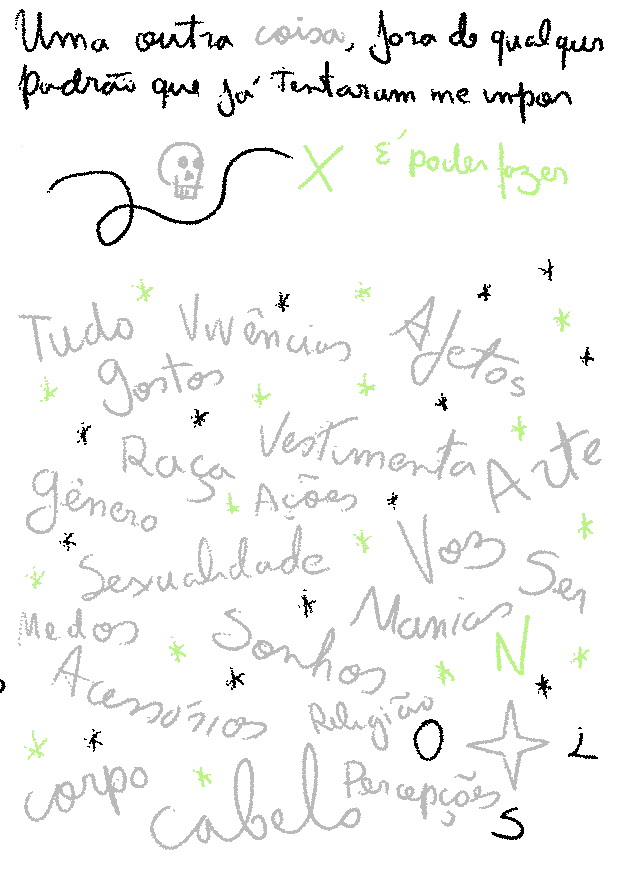 Uma outra coisa, fora de qualquer
padrão que já tentaram me impor
X É poder fazer
Tudo Vivências Afetos
gostos
Raça Vestimenta Arte
gênero Ações
Sexualidade Voz Ser
Medos Sonhos Manias
N
Acessórios Religião
O L
corpo cabelo Percepções
S